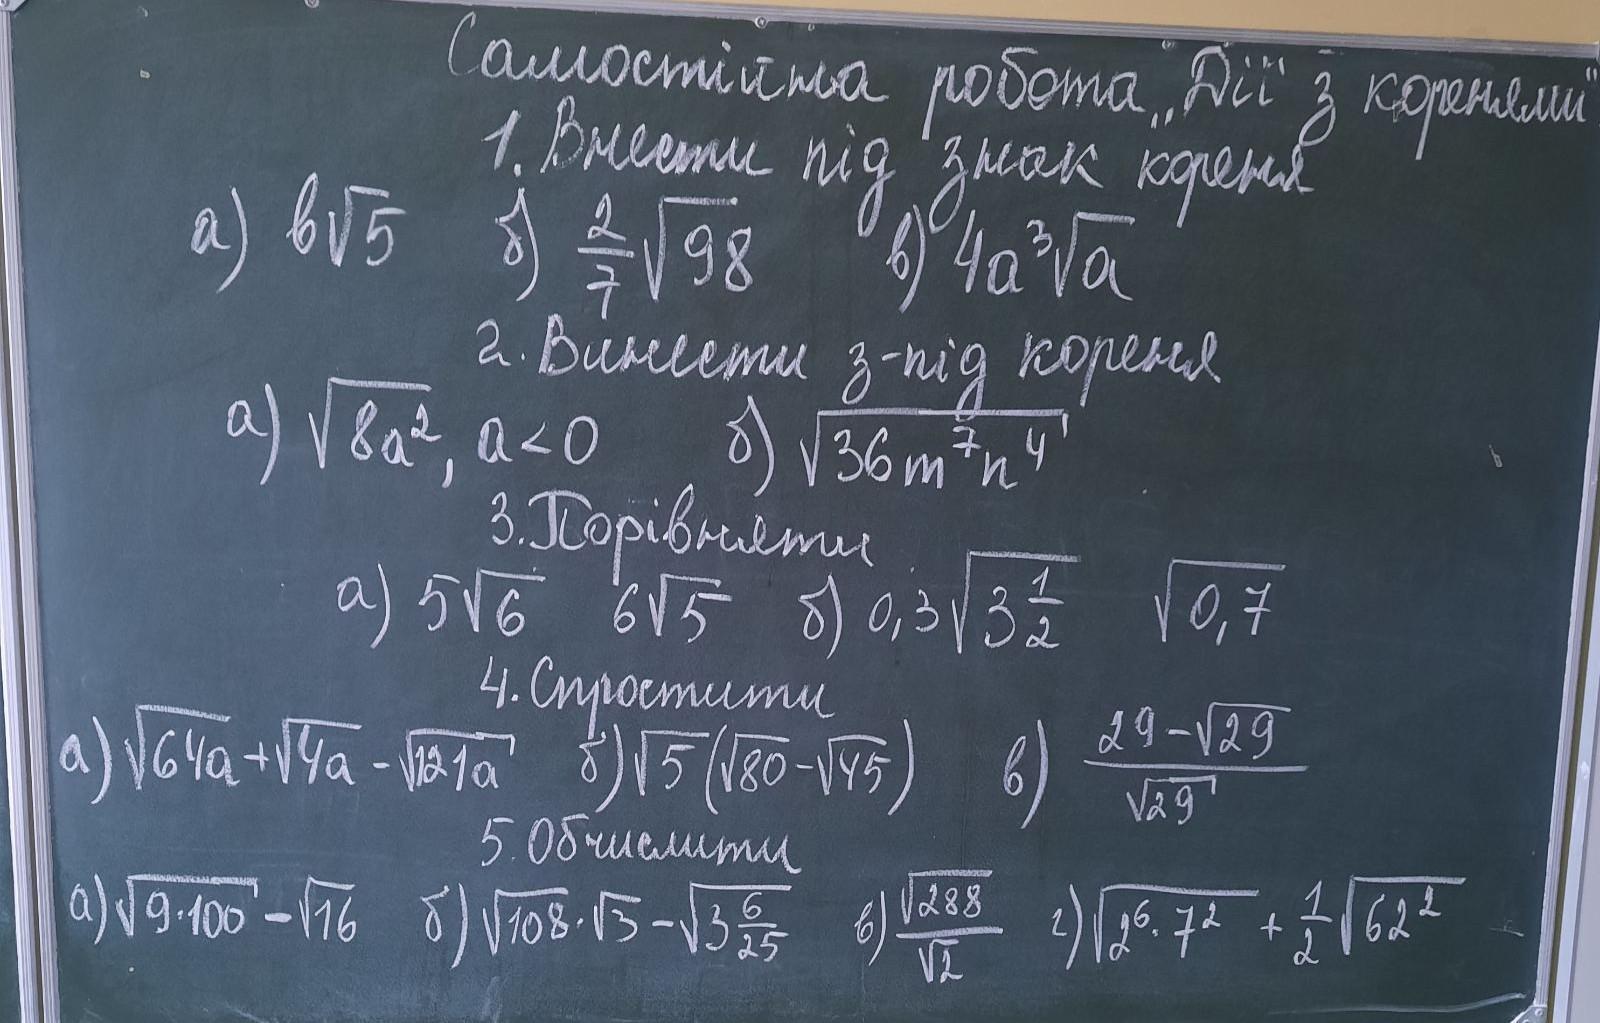 Самостійна робота „Дії з коренями"
1. Внести під знак кореня
а) в√5 б) 2/7 √98 в) 4a³√a
2. Винести з-під кореня
а) √(8a²), a < 0 б) √(36m⁷n⁴)
3. Порівняти
а) 5√6 6√5 б) 0,3√(3 1/2) √(0,7)
4. Спростити
а) √(64a) + √(4a) - √(121a) б) √5(√80 - √45) в) (29 - √29)/√29
5. Обчислити
а) √(9·100) - √16 б) √108·√3 - √(3 6/25) в) √288/√2 г) √(2⁶·7²) + 1/2 √(62²)